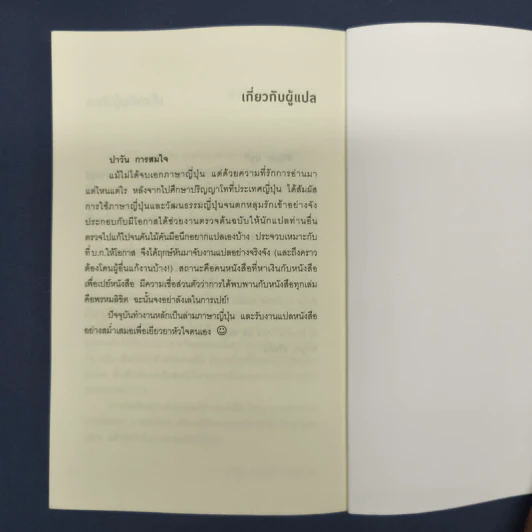 เกี่ยวกับผู้แปล
ปาวัน การสมใจ
แม้ไม่ได้จบเอกภาษาญี่ปุ่น แต่ด้วยความที่รักการอ่านมา
แต่ไหนแต่ไร หลังจากไปศึกษาปริญญาโทที่ประเทศญี่ปุ่น ได้สัมผัส
การใช้ภาษาญี่ปุ่นและวัฒนธรรมญี่ปุ่นจนตกหลุมรักเข้าอย่างจัง
ประกอบกับมีโอกาสได้ช่วยงานตรวจต้นฉบับให้นักแปลท่านอื่น
ตรวจไปแก้ไปจนคันไม้คันมือนึกอยากแปลเองบ้าง ประจวบเหมาะกับ
ที่บ.ก.ให้โอกาส จึงได้ฤกษ์หันมาจับงานแปลอย่างจริงจัง (และถึงคราว
ต้องโดนผู้อื่นแก้งานบ้าง!) สถานะคือคนหนังสือที่หาเงินกับหนังสือ
เพื่อเปย์หนังสือ มีความเชื่อส่วนตัวว่าการได้พบพานกับหนังสือทุกเล่ม
คือพรหมลิขิต ฉะนั้นจงอย่าลังเลในการเปย์!
ปัจจุบันทำงานหลักเป็นล่ามภาษาญี่ปุ่น และรับงานแปลหนังสือ
อย่างสม่ำเสมอเพื่อเยียวยาหัวใจตนเอง ☺